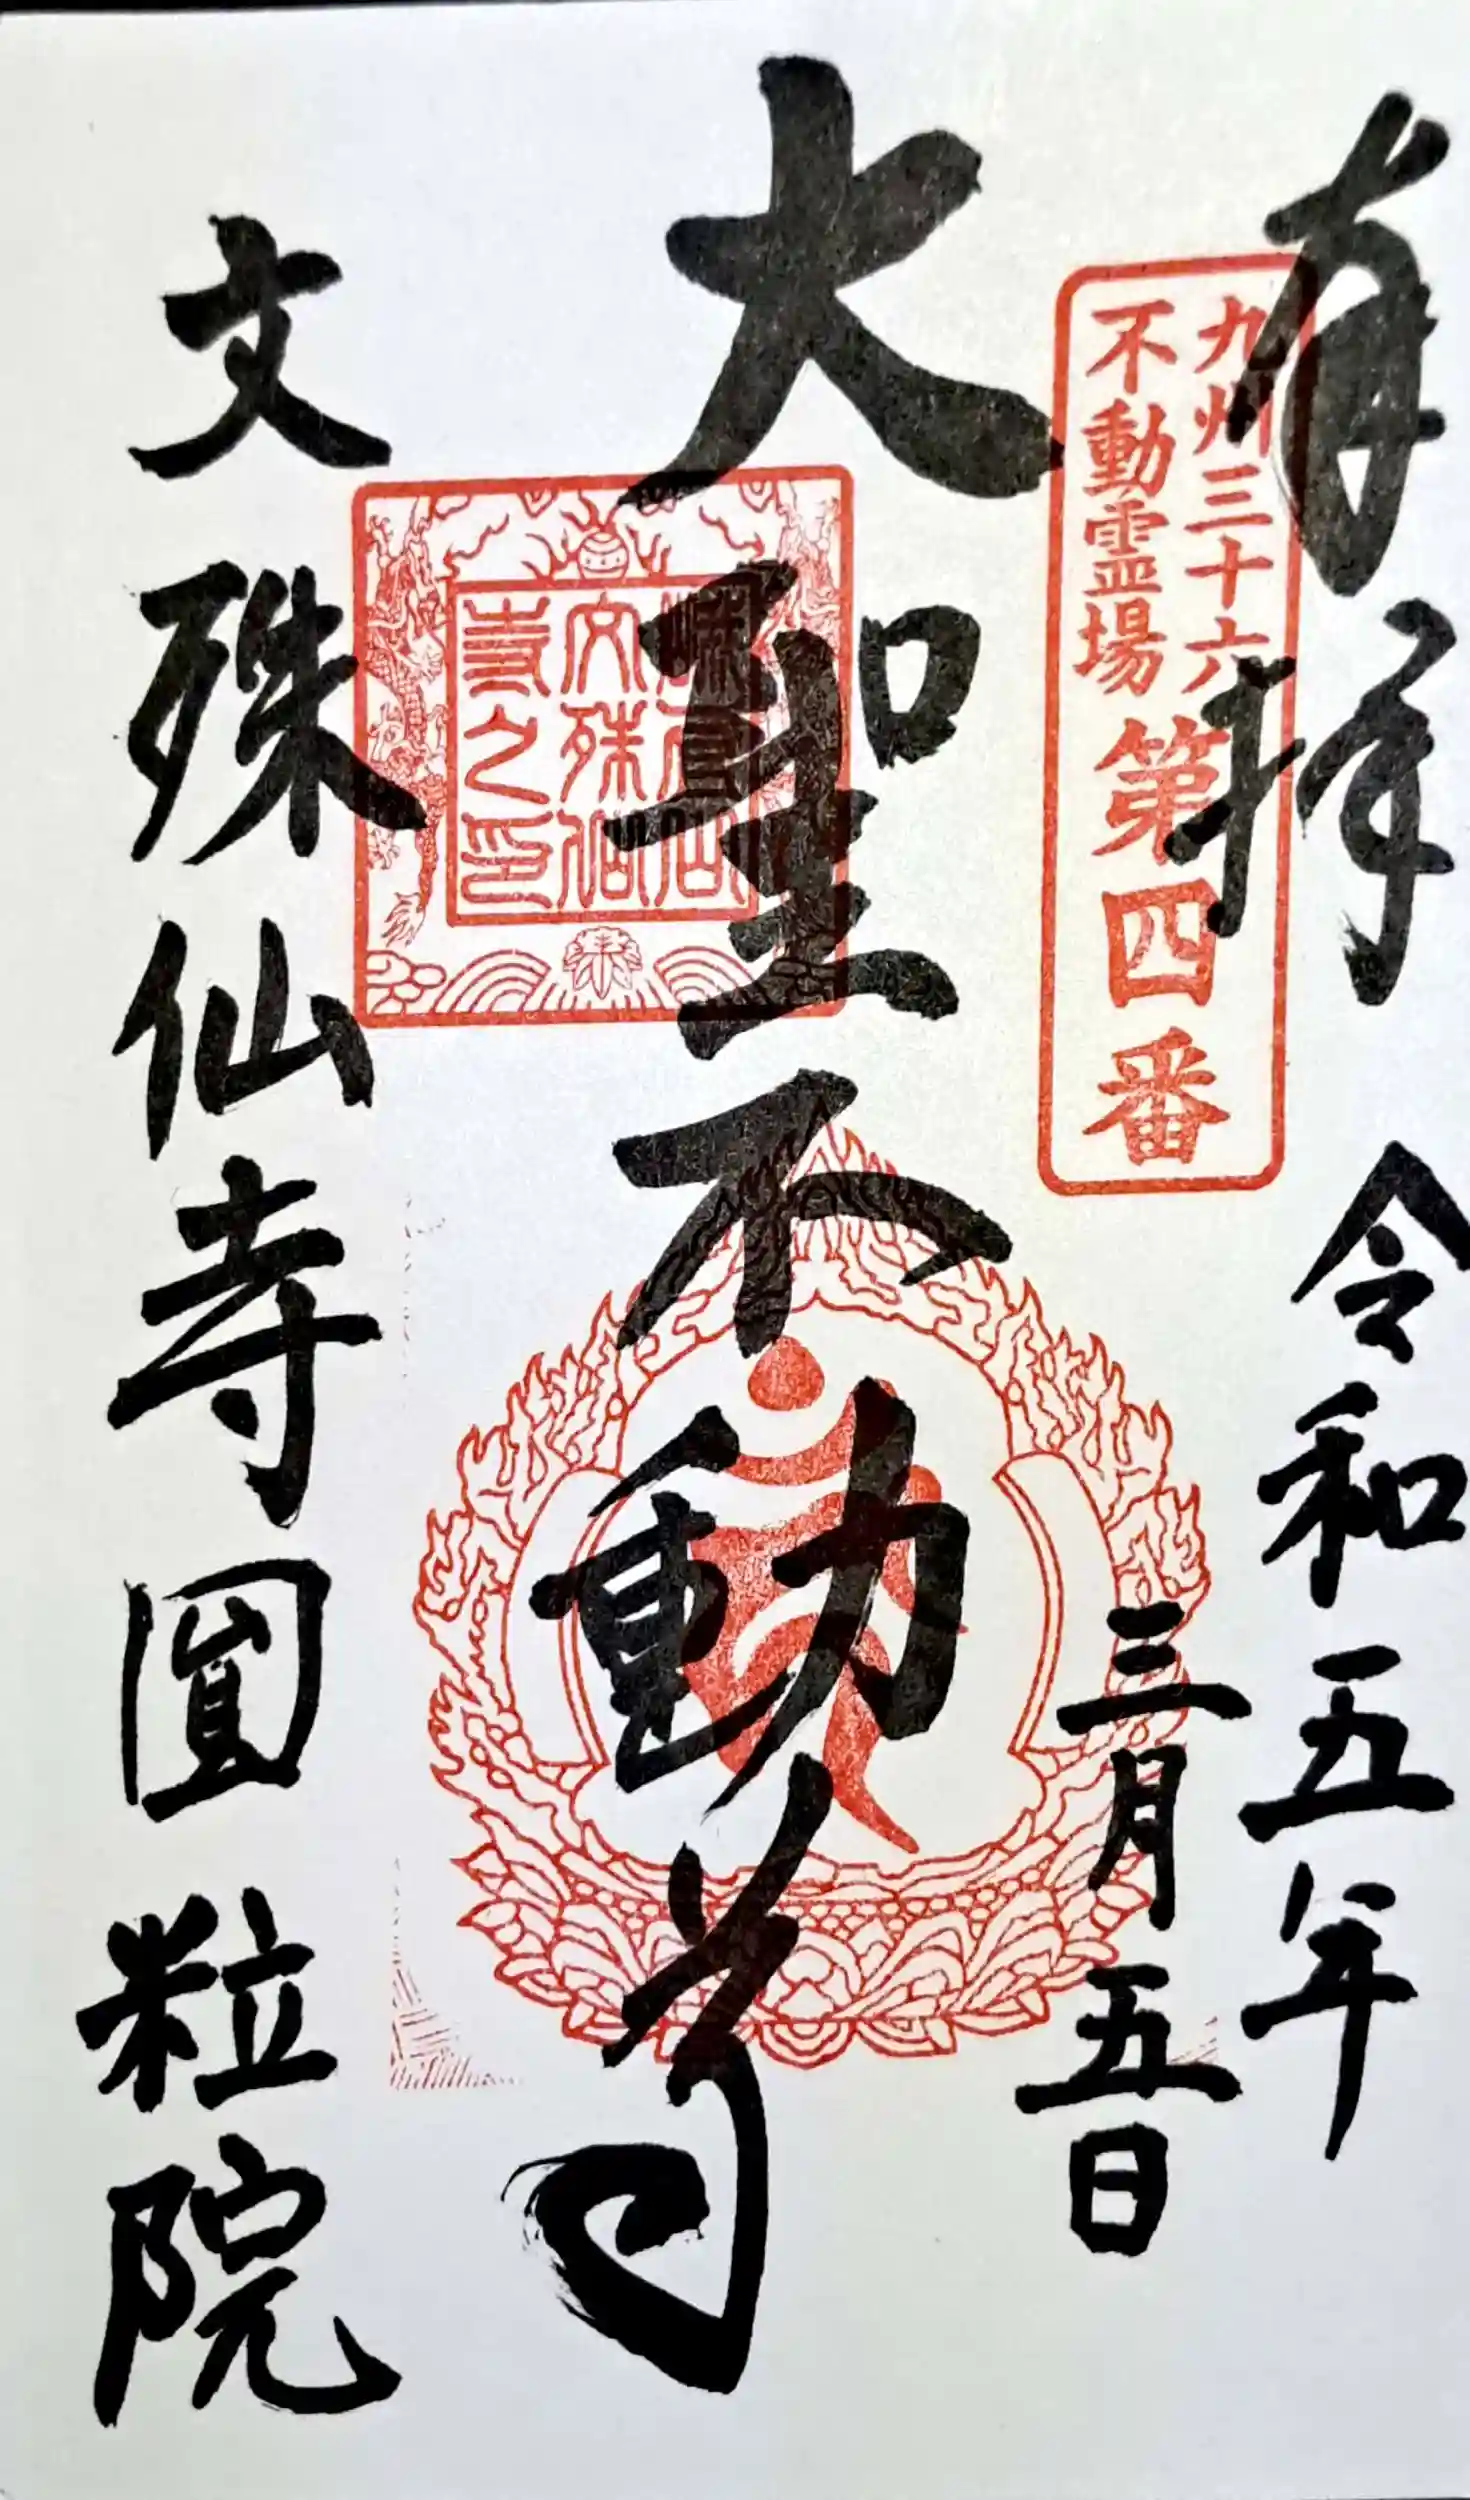 奉拝 令和五年
三月五日
九州三十六
不動霊場
第四番
大聖不動尊
峨眉山
文殊仙
寺之印
文殊仙寺圓粒院